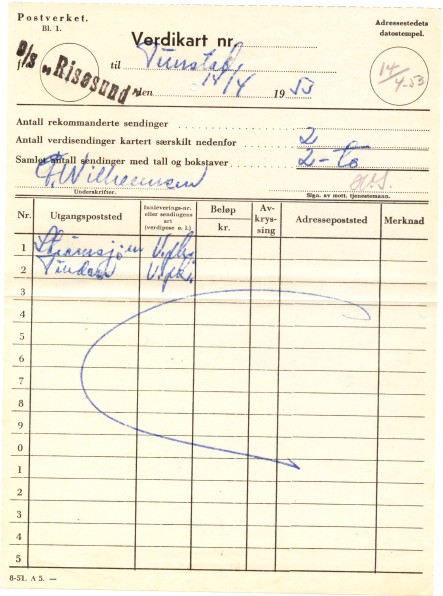 Postverket.
Bl. 1.
Adressestedets
datostempel.
Verdikart nr.
D/S „Risøsund”
f
til Tunstad
den 14/4 1953
14/4-53
Antall rekommanderte sendinger
Antall verdisendinger kartert særskilt nedenfor 2
Samlet antall sendinger med tall og bokstaver 2 - to
F. Wilhelmsen
Underskrifter.
Sign. av mott. tjenestemann.
Nr. Utgangspoststed Innleverings-nr. eller sendingens art (verdipose o. l.) Beløp kr. Av-krys-sing Adressepoststed Merknad
1 V.pk.
2 V.pk.
3
4
5
6
7
8
9
0
1
2
3
4
5
8-51. A 5. —